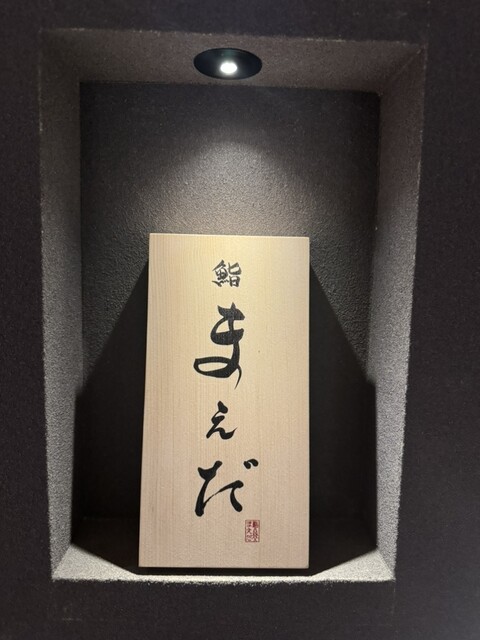 鮨
まえだ